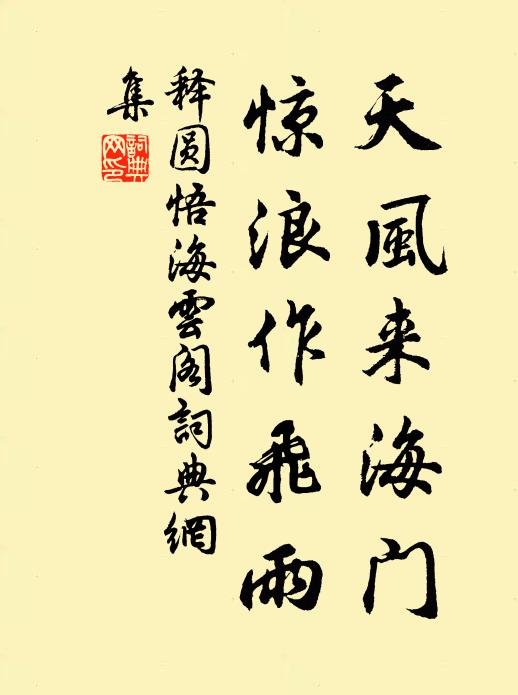 天風来海门
惊浪作飛雨
释圆悟海雲阁詞典網
集
詞典
网印